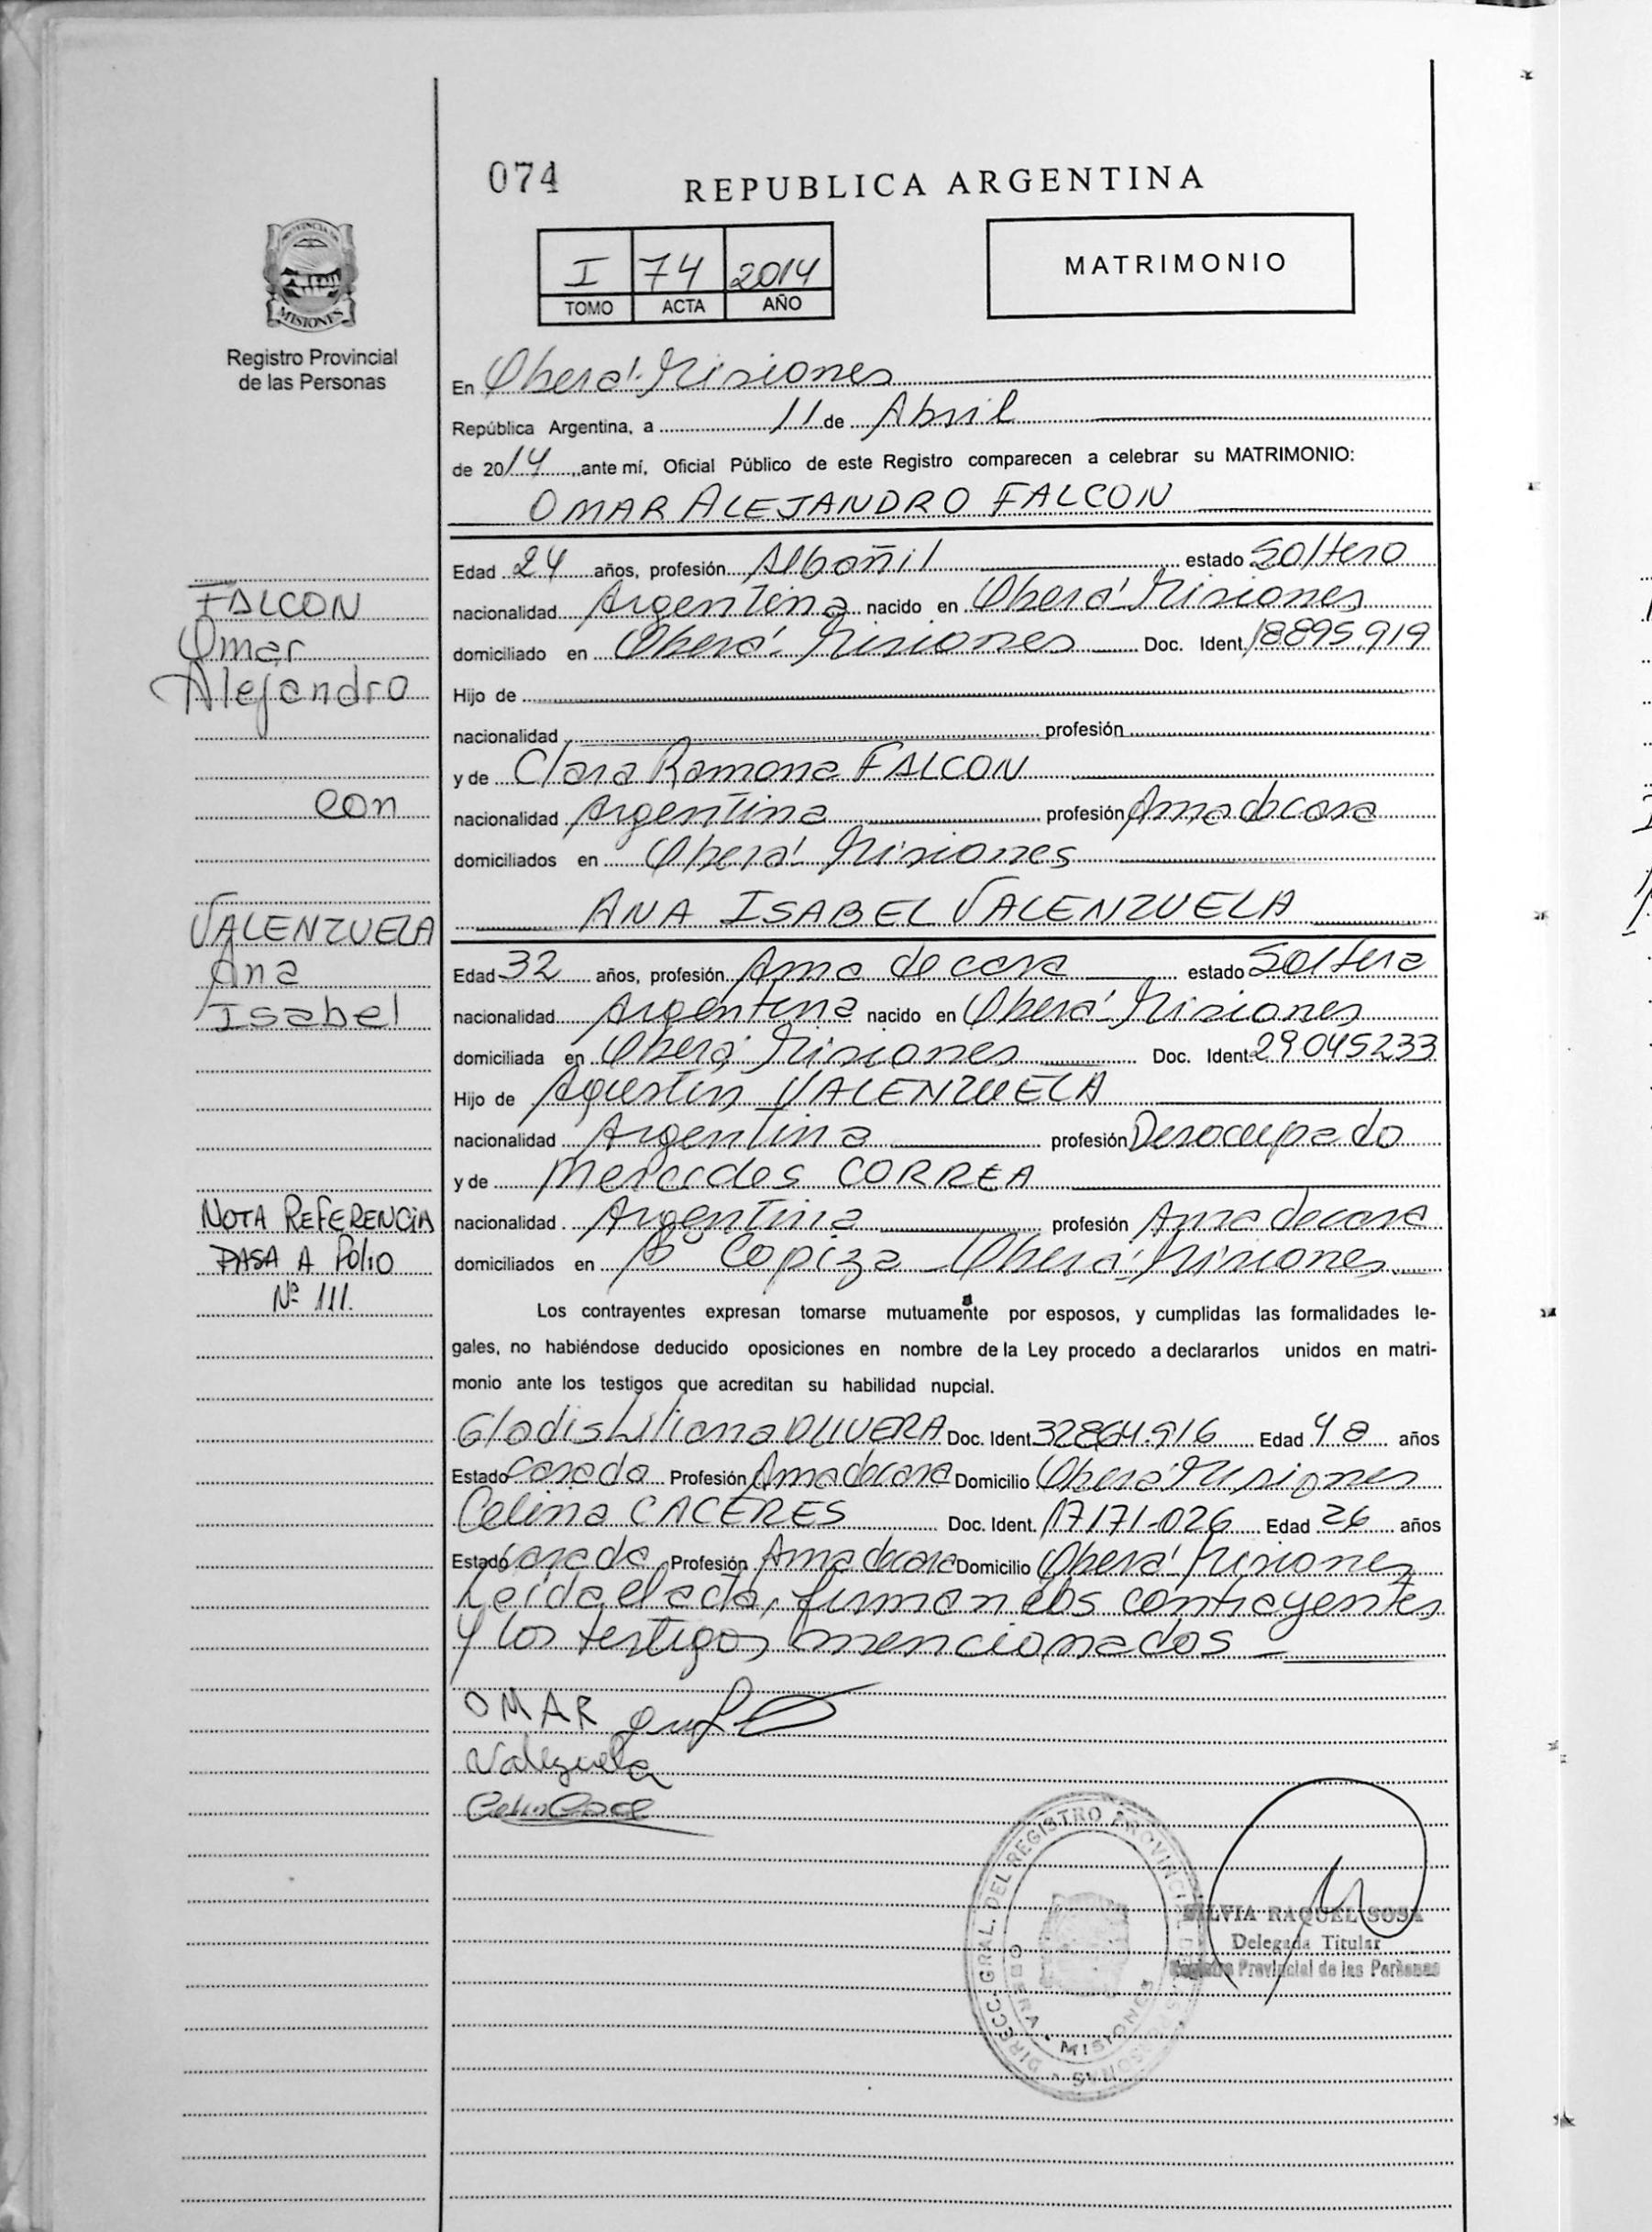 074
REPUBLICA ARGENTINA
PROVINCIA DE
MISIONES
Registro Provincial
de las Personas
I 74 2014
TOMO ACTA AÑO
MATRIMONIO
En Oberá-Misiones
República Argentina, a 11 de Abril
de 2014, ante mí, Oficial Público de este Registro comparecen a celebrar su MATRIMONIO:
OMAR ALEJANDRO FALCON
Edad 24 años, profesión Albañil estado Soltero
nacionalidad Argentina nacido en Oberá-Misiones
domiciliado en Oberá-Misiones Doc. Ident. 18895.919
Hijo de
nacionalidad profesión
y de Clara Ramona FALCON
nacionalidad Argentina profesión Ama de casa
domiciliados en Oberá-Misiones
ANA ISABEL VALENZUELA
Edad 32 años, profesión Ama de casa estado Soltera
nacionalidad Argentina nacido en Oberá-Misiones
domiciliada en Oberá-Misiones Doc. Ident. 29045233
Hijo de Agustin VALENZUELA
nacionalidad Argentina profesión Desocupado
y de Mercedes CORREA
nacionalidad Argentina profesión Ama de casa
domiciliados en Bº Copiza-Oberá-Misiones
Los contrayentes expresan tomarse mutuamente por esposos, y cumplidas las formalidades le-
gales, no habiéndose deducido oposiciones en nombre de la Ley procedo a declararlos unidos en matri-
monio ante los testigos que acreditan su habilidad nupcial.
Gladis Liliana OLIVERA Doc. Ident. 32864.916 Edad 48 años
Estado Casada Profesión Ama de casa Domicilio Oberá-Misiones
Celina CACERES Doc. Ident. 17171.026 Edad 26 años
Estado Casada Profesión Ama de casa Domicilio Oberá-Misiones
Leída el acta, firman los contrayentes
y los testigos mencionados
OMAR
Valezuela
FALCON
Omar
Alejandro
con
VALENZUELA
Ana
Isabel
NOTA REFERENCIA
PASA A FOLIO
Nº 111.
DIRECC. GRAL. DEL REGISTRO PROVINCIAL DE LAS PERSONAS
OBERA - MISIONES
SILVIA RAQUEL SOSA
Delegada Titular
Registro Provincial de las Personas